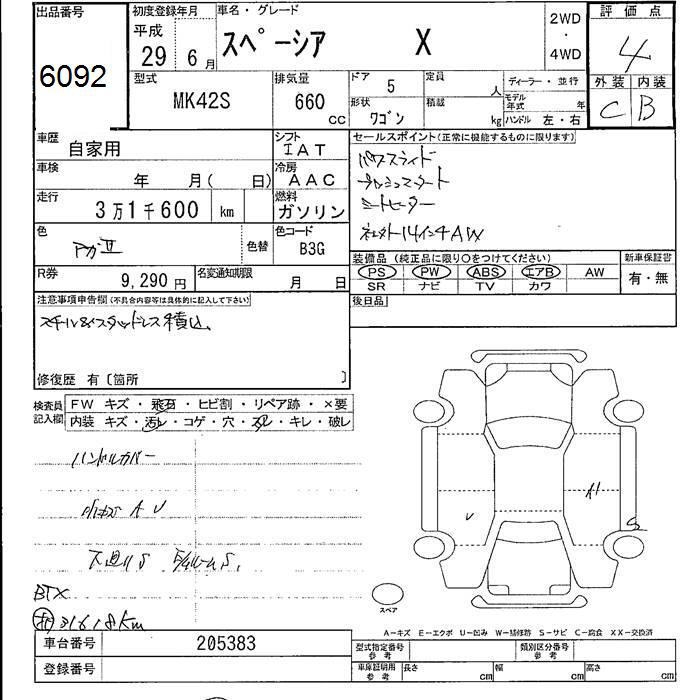 出品番号
6092
初度登録年月
平成
29 6月
車名・グレード
スペーシア X
2WD
・
4WD
評価点
4
外装 内装
C B
型式
MK42S
排気量
660
cc
ドア 5
定員 人
形状
ワゴン
積載 kg
ディーラー・並行
モデル年式 年
ハンドル 左・右
車歴
自家用
シフト
IAT
車検
年 月( 日)
冷房
AAC
走行
3万1千600 km
燃料
ガソリン
色
色替
色コード
B3G
R券
9,290円
名変通知期限
月 日
セールスポイント(正常に機能するものに限ります)
パワスライド
プッシュスタート
シートヒーター
14インチAW
装備品(純正品に限り○をつけてください)
PS PW ABS エアB AW
SR ナビ TV カワ
新車保証書
有・無
後日品
注意事項申告欄(不具合内容等は具体的に記入して下さい)
スタッドレス積込
修復歴 有〔箇所 〕
検査員記入欄
FW キズ・飛石・ヒビ割・リペア跡・×要
内装 キズ・汚レ・コゲ・穴・スレ・キレ・破レ
ハンドルカバー
A U
下廻りS
BTX
31618km
U
A1
S
スペア
A-キズ E-エクボ U-凹み W-補修跡 S-サビ C-腐食 XX-交換済
車台番号
205383
登録番号
型式指定番号
参考
類別区分番号
参考
車庫証明用
参考
長さ cm
幅 cm
高さ cm